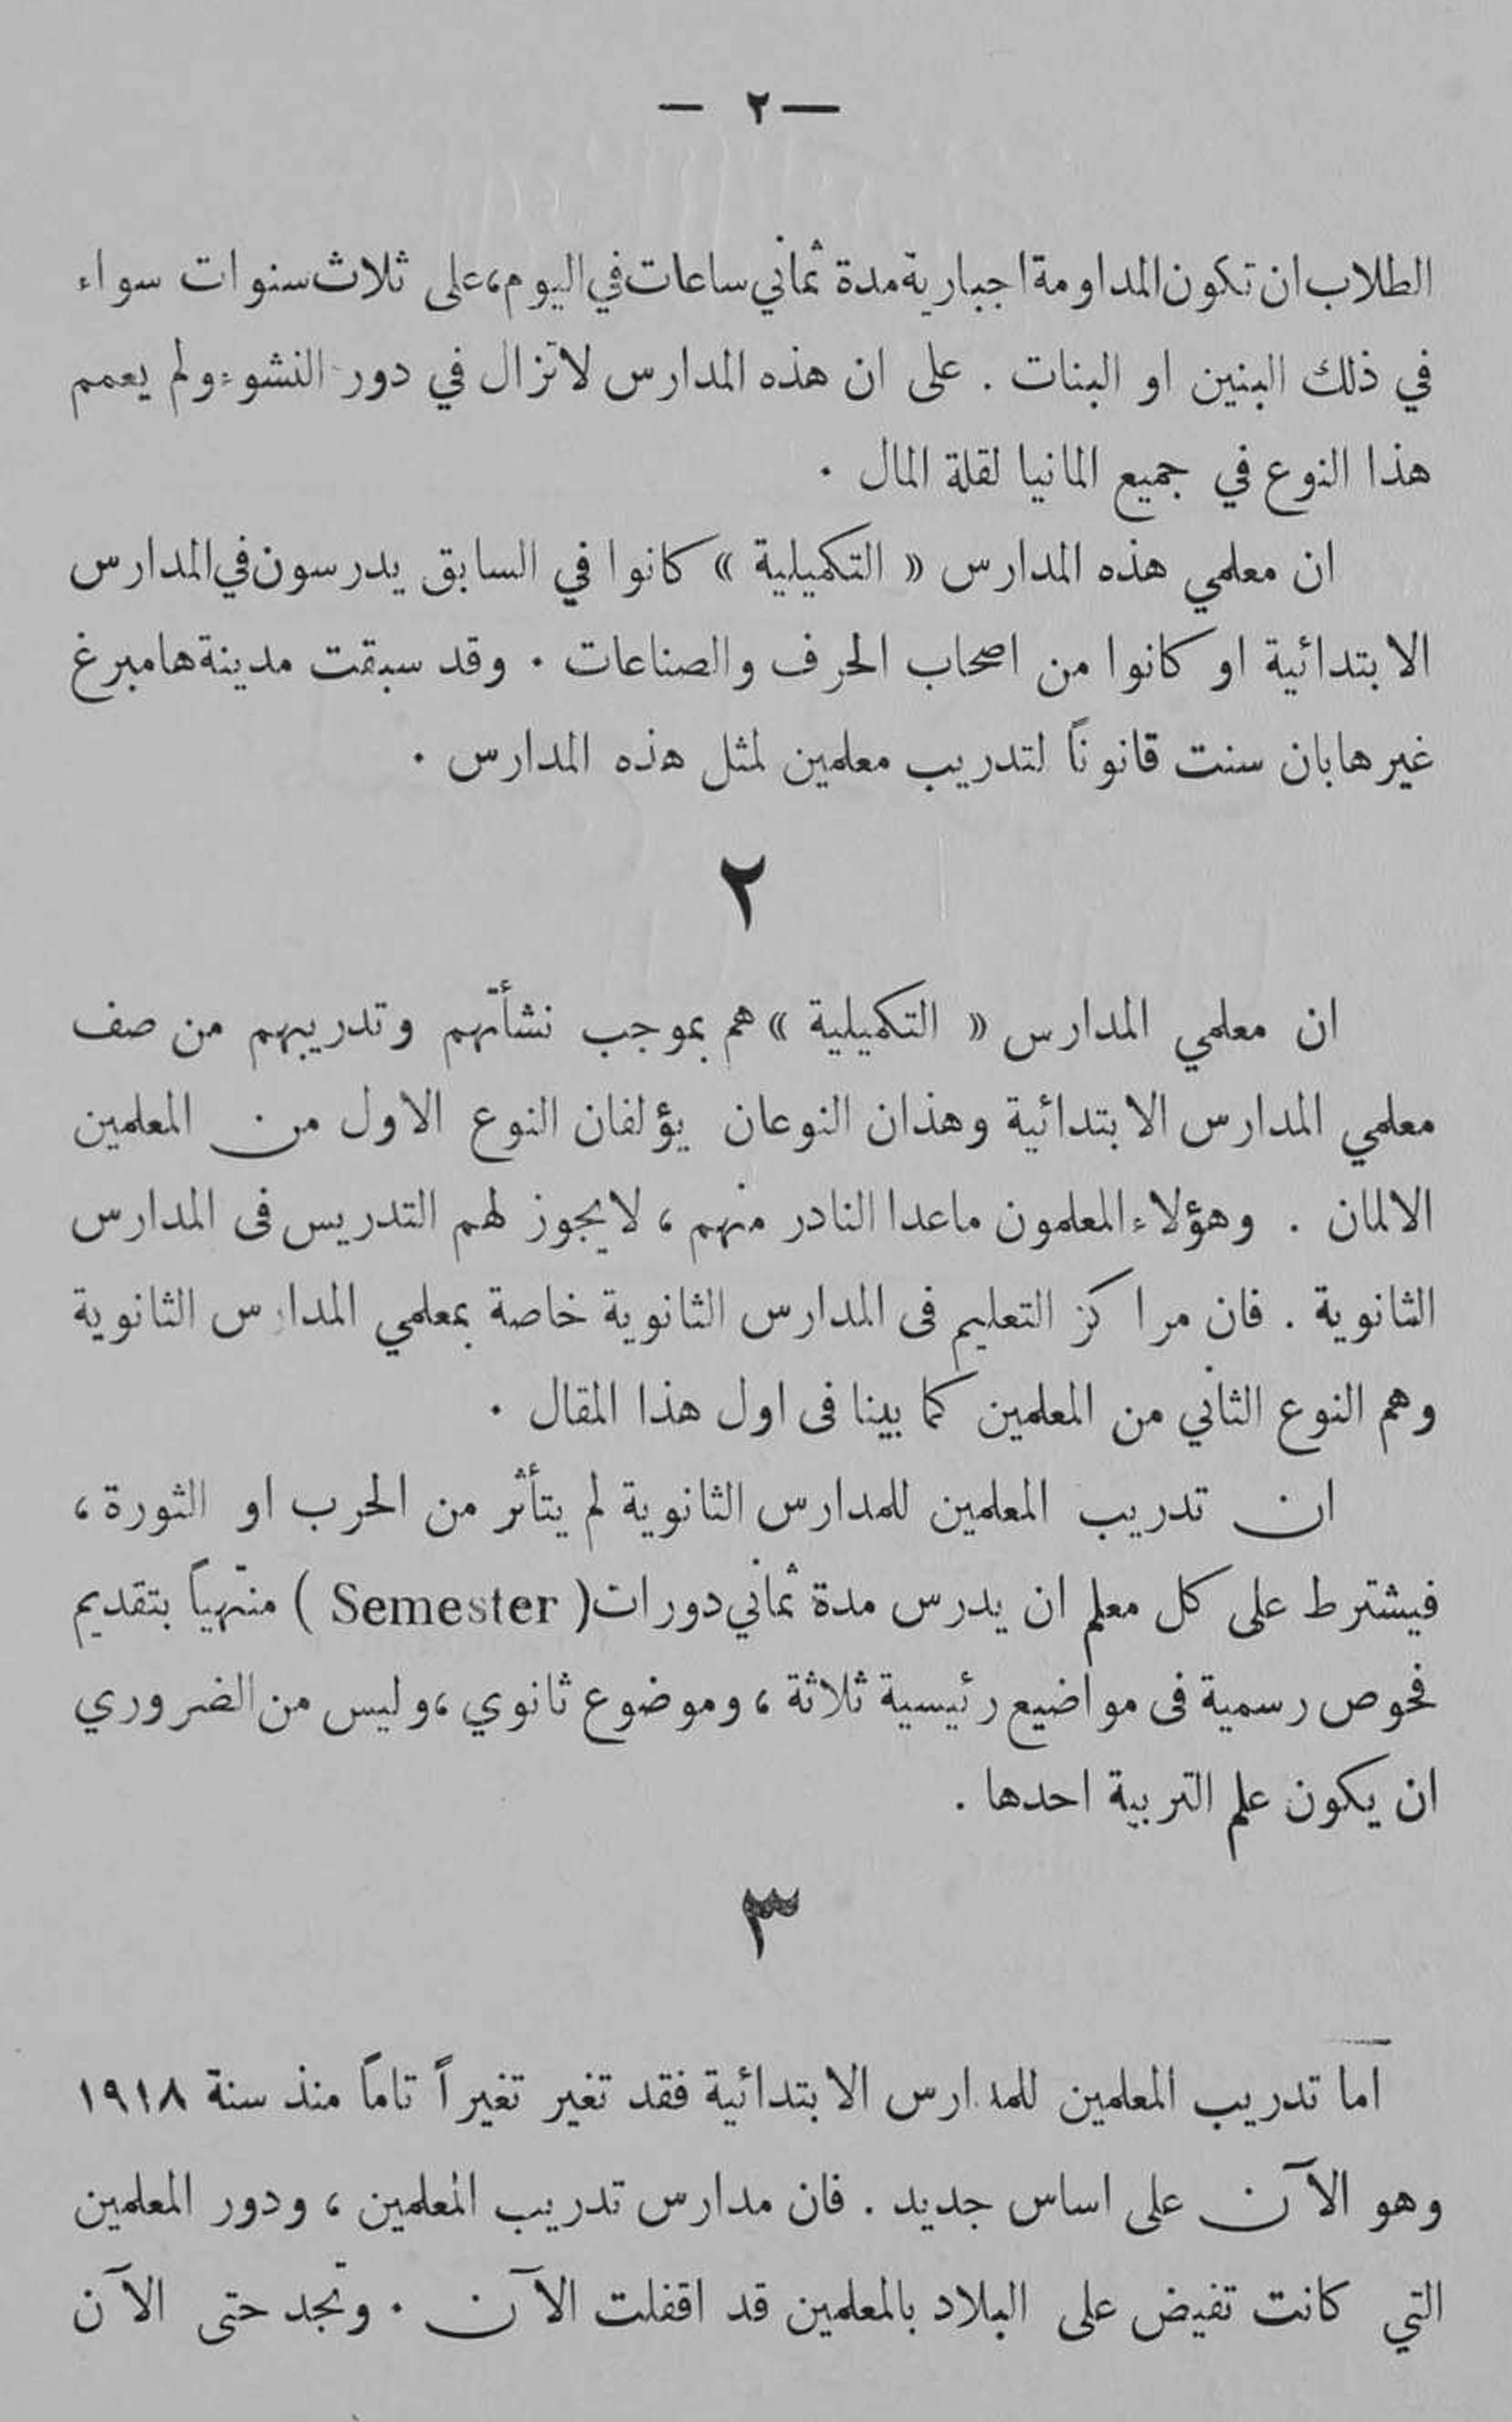 — ٢ —
الطلاب ان تكون المداومة اجبارية مدة ثماني ساعات في اليوم، على ثلاث سنوات سواء
في ذلك البنين او البنات . على ان هذه المدارس لا تزال في دور النشوء ولم يعمم
هذا النوع في جميع المانيا لقلة المال .
ان معلمي هذه المدارس « التكميلية » كانوا في السابق يدرسون في المدارس
الابتدائية او كانوا من اصحاب الحرف والصناعات . وقد سبقت مدينة هامبرغ
غيرها بان سنت قانوناً لتدريب معلمين لمثل هذه المدارس .
٢
ان معلمي المدارس « التكميلية » هم بموجب نشأتهم وتدريبهم من صف
معلمي المدارس الابتدائية وهذان النوعان يؤلفان النوع الاول من المعلمين
الالمان . وهؤلاء المعلمون ماعدا النادر منهم ، لا يجوز لهم التدريس فى المدارس
الثانوية . فان مراكز التعليم فى المدارس الثانوية خاصة بمعلمي المدارس الثانوية
وهم النوع الثاني من المعلمين كما بينا فى اول هذا المقال .
ان تدريب المعلمين للمدارس الثانوية لم يتأثر من الحرب او الثورة ،
فيشترط على كل معلم ان يدرس مدة ثماني دورات ( Semester ) منتهياً بتقديم
فحوص رسمية فى مواضيع رئيسية ثلاثة ، وموضوع ثانوي ، وليس من الضروري
ان يكون علم التربية احدها .
٣
اما تدريب المعلمين للمدارس الابتدائية فقد تغير تغيراً تاماً منذ سنة ١٩١٨
وهو الآن على اساس جديد . فان مدارس تدريب المعلمين ، ودور المعلمين
التي كانت تفيض على البلاد بالمعلمين قد اقفلت الآن . وتجد حتى الآن